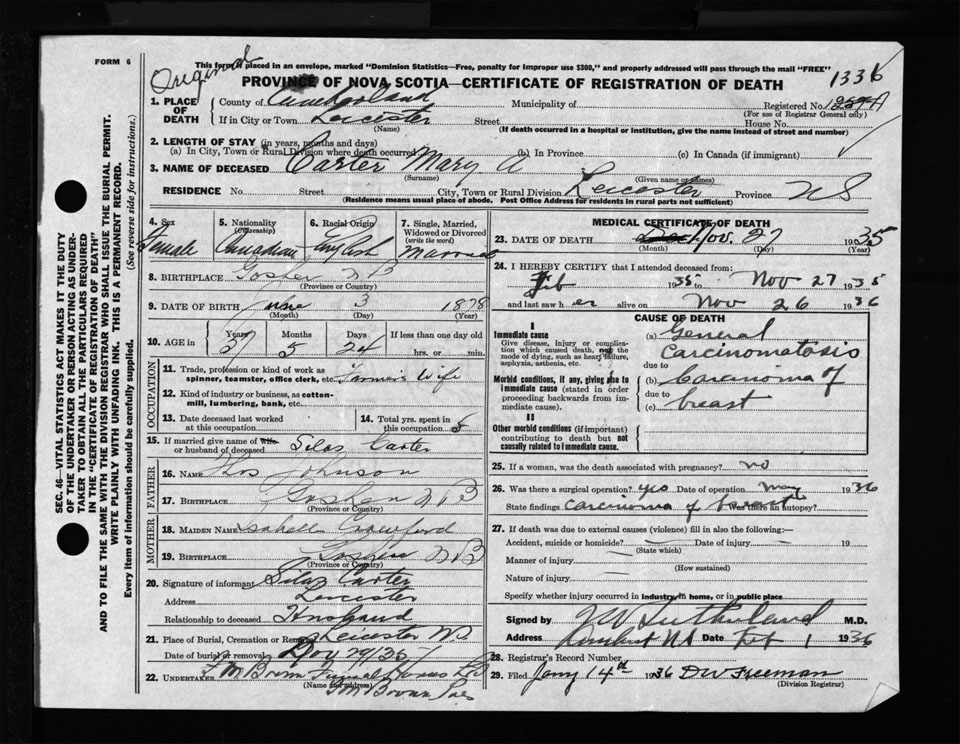 FORM 6
Original
This form if placed in an envelope, marked "Dominion Statistics—Free, penalty for improper use $300," and properly addressed will pass through the mail "FREE"
PROVINCE OF NOVA SCOTIA—CERTIFICATE OF REGISTRATION OF DEATH
1336
1. PLACE OF DEATH
County of Cumberland Municipality of Registered No.
(For use of Registrar General only)
If in City or Town Leicester Street House No.
(Name) (If death occurred in a hospital or institution, give the name instead of street and number)
2. LENGTH OF STAY (in years, months and days)
(a) In City, Town or Rural Division where death occurred (b) In Province (c) In Canada (if immigrant)
3. NAME OF DECEASED Carter Mary A
(Surname) (Given name or names)
RESIDENCE No. Street City, Town or Rural Division Leicester Province NS
(Residence means usual place of abode. Post Office Address for residents in rural parts not sufficient)
4. Sex Female
5. Nationality (Citizenship) Canadian
6. Racial Origin English
7. Single, Married, Widowed or Divorced (write the word) Married
8. BIRTHPLACE Goshen NB
(Province or Country)
9. DATE OF BIRTH June 3 1878
(Month) (Day)
10. AGE in Years 57 Months 5 Days 24 If less than one day old
hrs. or min.
OCCUPATION
11. Trade, profession or kind of work as spinner, teamster, office clerk, etc. Farmer's Wife
12. Kind of industry or business, as cotton-mill, lumbering, bank, etc.
13. Date deceased last worked at this occupation
14. Total yrs. spent in this occupation
15. If married give name of wife or husband of deceased Silas Carter
FATHER
16. NAME Thos Johnson
17. BIRTHPLACE Goshen NB
(Province or Country)
MOTHER
18. MAIDEN NAME Isabell Crawford
19. BIRTHPLACE Goshen NB
(Province or Country)
20. Signature of informant Silas Carter
Address Leicester
Relationship to deceased Husband
21. Place of Burial, Cremation or Removal Leicester NS
Date of burial or removal Nov 29/35
22. UNDERTAKER F M Brown Funeral Homes Ltd
(Name and address)
MEDICAL CERTIFICATE OF DEATH
23. DATE OF DEATH Nov. 27 1935
(Month) (Day)
24. I HEREBY CERTIFY that I attended deceased from:
Feb 1935 to Nov 27 1935
and last saw her alive on Nov 26 1936
CAUSE OF DEATH
I
Immediate cause
Give disease, injury or complication which caused death, not the mode of dying, such as heart failure, asphyxia, asthenia, etc.
(a) General Carcinomatosis
due to
Morbid conditions, if any, giving rise to immediate cause (stated in order proceeding backwards from immediate cause)
(b) Carcinoma of
due to
(c) breast
II
Other morbid conditions (if important) contributing to death but not causally related to immediate cause.
25. If a woman, was the death associated with pregnancy? no
26. Was there a surgical operation? yes Date of operation May 1936
State findings Carcinoma of breast Was there an autopsy?
27. If death was due to external causes (violence) fill in also the following:—
Accident, suicide or homicide? Date of injury 19
(State which)
Manner of injury
(How sustained)
Nature of injury
Specify whether injury occurred in industry, in home, or in public place
Signed by Sutherland M.D.
Address Amherst NS Date Feb 1 1936
28. Registrar's Record Number
29. Filed Jany 14th 1936 DW Freeman
(Division Registrar)
SEC. 46—VITAL STATISTICS ACT MAKES IT THE DUTY
OF THE UNDERTAKER OR PERSON ACTING AS UNDER-
TAKER TO OBTAIN ALL THE PARTICULARS REQUIRED
IN THE "CERTIFICATE OF REGISTRATION OF DEATH"
AND TO FILE THE SAME WITH THE DIVISION REGISTRAR WHO SHALL ISSUE THE BURIAL PERMIT.
WRITE PLAINLY WITH UNFADING INK. THIS IS A PERMANENT RECORD.
Every item of information should be carefully supplied. (See reverse side for instructions.)